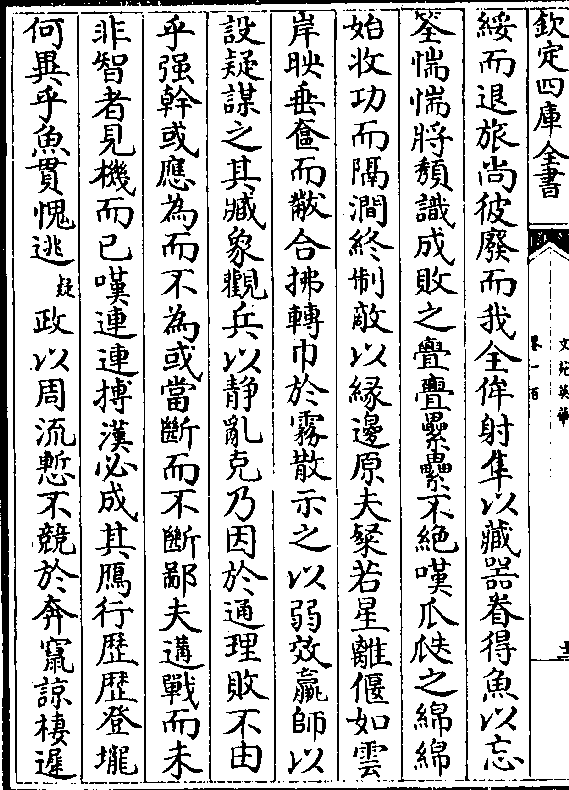 欽定四庫全書
文苑英華
卷一百
士
綏而退旅尚彼廢而我全侔射隼以藏器眷得魚以忘
筌惴惴將頽識成敗之疊疊纍纍不絶嘆瓜瓞之綿綿
始收功而隔澗終制敵以緣邊原夫粲若星離偃如雲
岸映垂奩而黻合拂轉巾於霧散示之以弱效羸師以
設疑謀之其臧象觀兵以静亂克乃因於通理敗不由
乎强幹或應為而不為或當斷而不斷鄙夫遘戰而未
非智者見機而已嘆連連摶漢必成其鴈行歴歴登壠
何異乎魚貫愧逃疑政以周流慙不競於奔竄諒棲遲